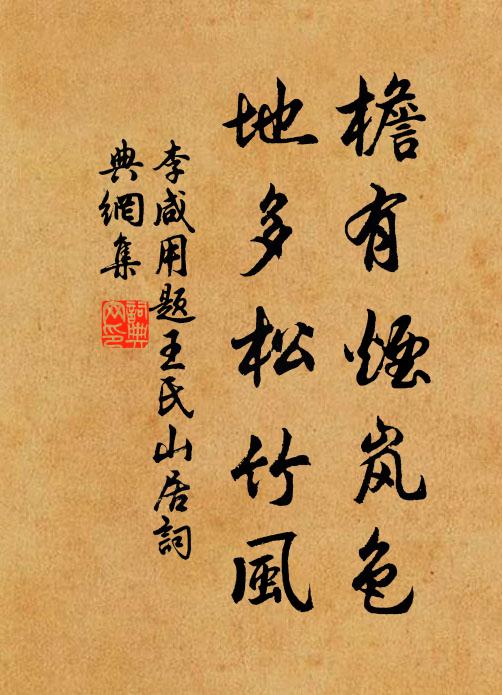 檐有煙岚色
地多松竹風
李咸用題王氏山居詞
典網集
詞典
网印